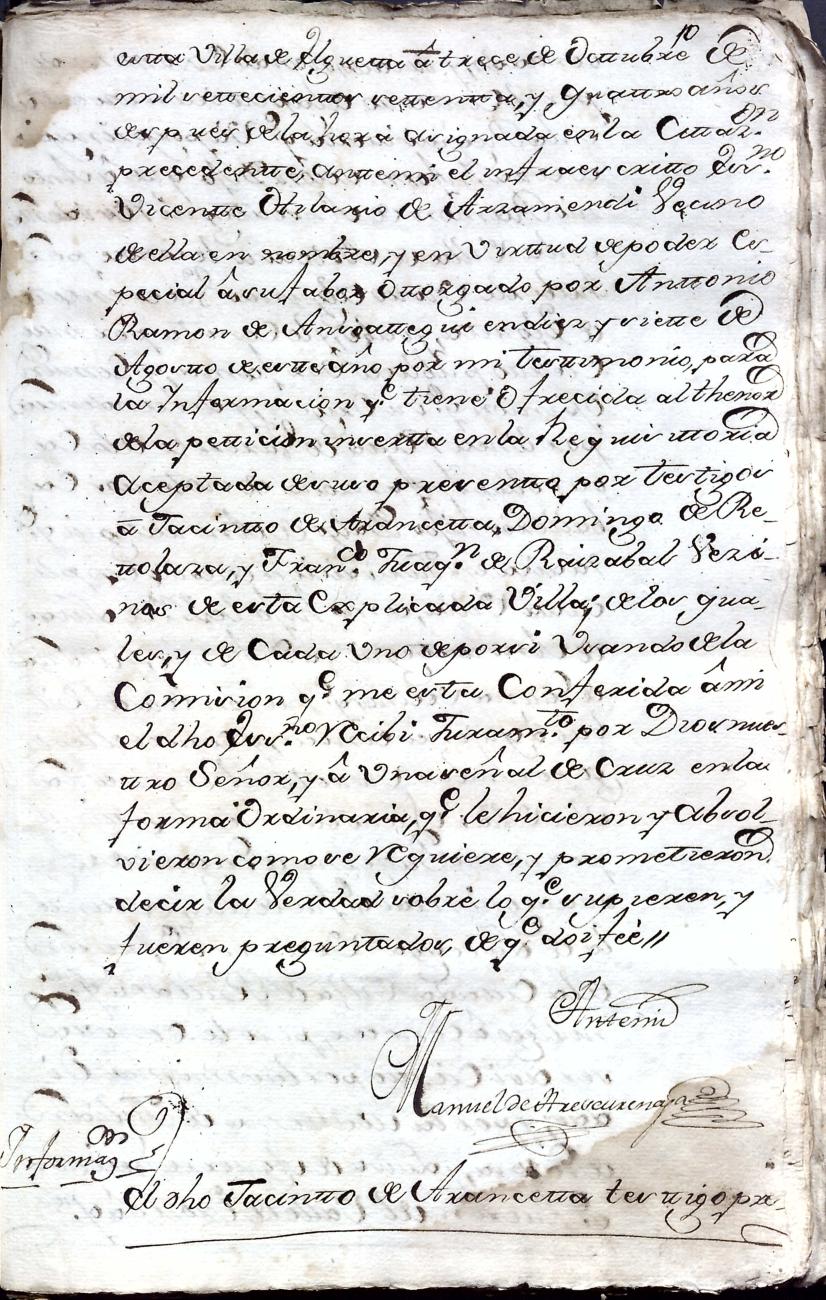 10
esta Villa de Elgueta â trece de Octtubre de
mil settecienttos settentta, y quattro años
despues de la hora asignada en la Cittaz.on
precedente, antemi el infraescritto Ess.no
Vicente Hilario de Arzamendi Vecino
de ella en nombre, y en Virttud de poder Es-
pecial â su fabor Ottorgado por Anttonio
Ramon de en diez y siette de
Agosto de este año por mi testimonio, para
la Informacion q.e tiene Ofrecida al thenor
de la petticion inserta en la Requisittoria
aceptada de suso presentto por testigos
â Jacintto de Arancetta, Domingo de Re-
tolaza, y Fran.co Juaq.n de Raizabal Vezi-
nos de esta Explicada Villa; de los qua-
les, y de Cada Uno de por si Usando de la
Comision q.e me esta Conferida âmi
el dho Ess.no Recibi Juram.to por Dios nues-
ttro Señor, y â Una señal de Cruz en la
forma Ordinaria, q.e le hicieron y absol-
vieron como se Requiere, y prometieron
decir la Verdad sobre lo q.e supieren, y
fueren preguntados, de q.e doi feè //
Antemi
Manuel de
Informaz.on
El dho Jacintto de Arancetta testtigo pre-